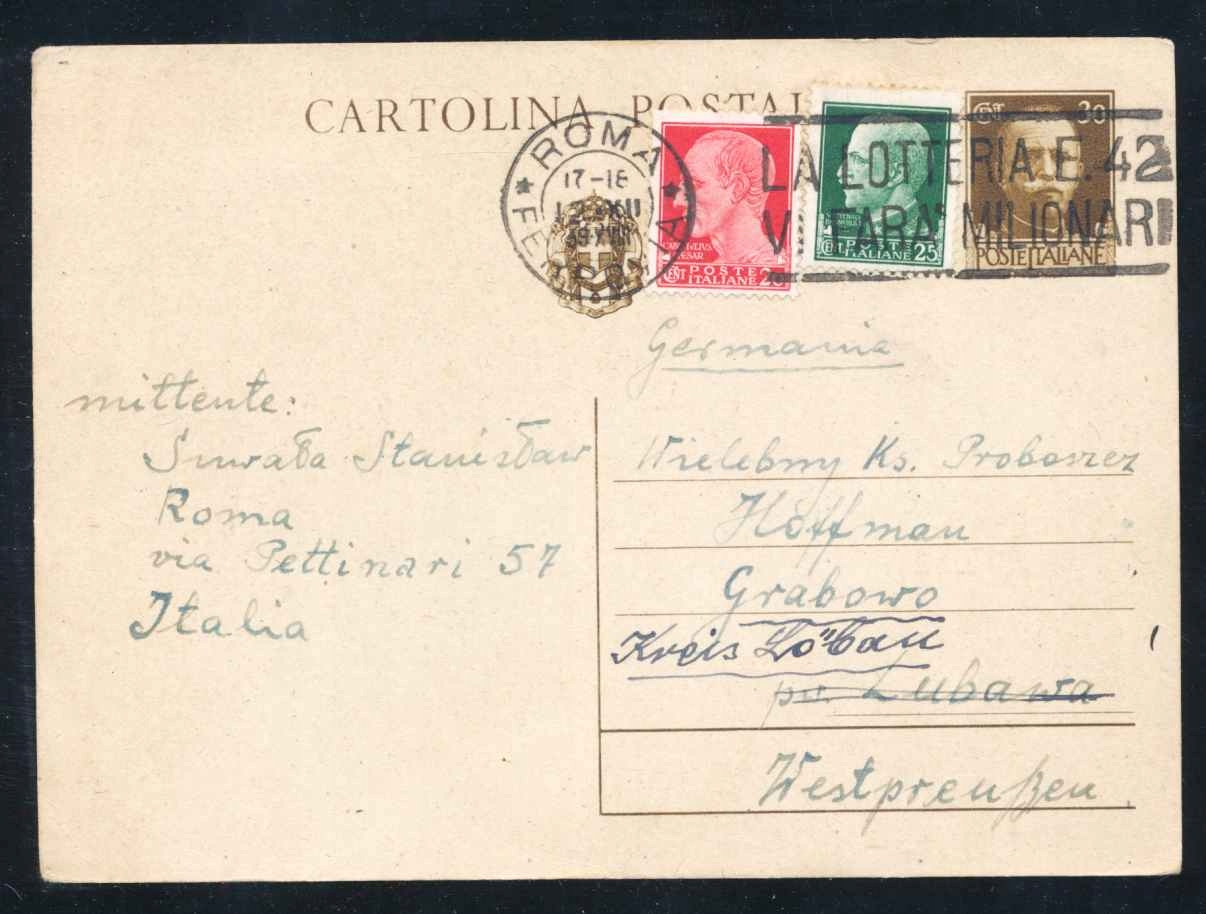 CARTOLINA POSTAL
ROMA
17-18
39 XVIII
FERROVIA
CAIVS IVLIVS
CAESAR
CENT POSTE
ITALIANE 20
CENT POSTE
ITALIANE 25
CENT 30
POSTE ITALIANE
LA LOTTERIA E. 42
VI FARA' MILIONARI
Germania
mittente:
Suwała Stanisław
Roma
via Pettinari 57
Italia
Wielebny Ks. Proboszcz
Hoffman
Grabowo
Kreis Löbau
pw. Lubawa
Westpreußen